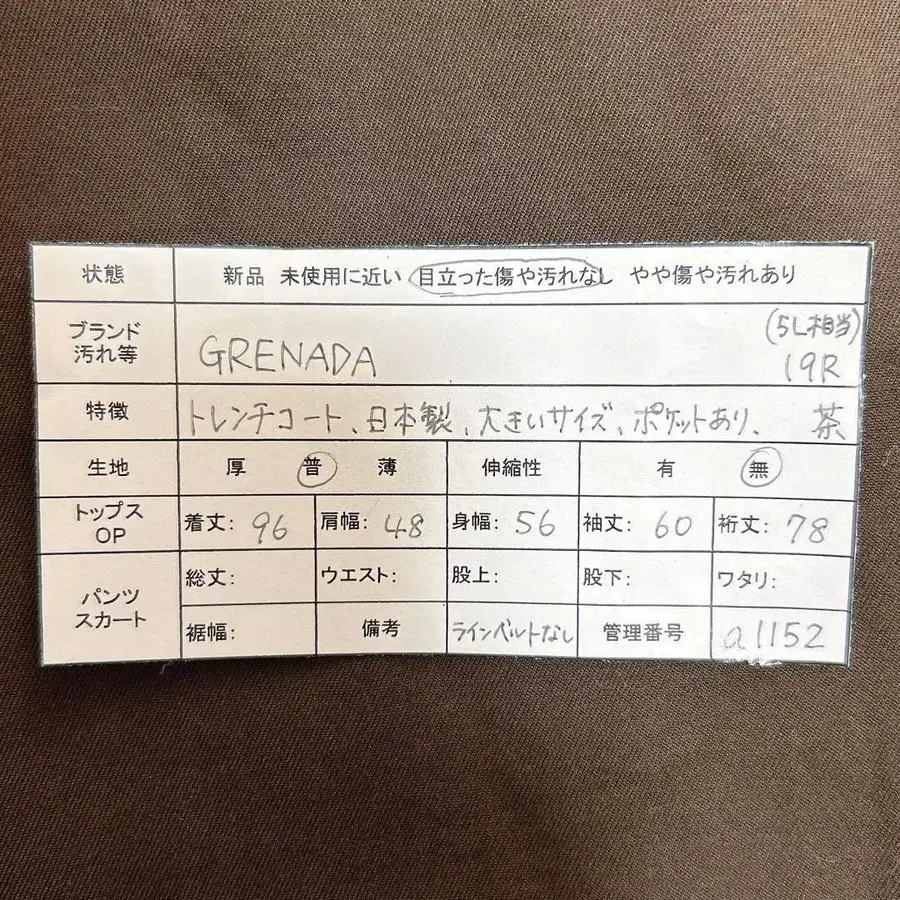 状態 新品 未使用に近い 目立った傷や汚れなし やや傷や汚れあり
ブランド
汚れ等
GRENADA
(5L相当)
19R
特徴 トレンチコート、日本製、大きいサイズ、ポケットあり、 茶
生地 厚 普 薄 伸縮性 有 無
トップス
OP
着丈: 96 肩幅: 48 身幅: 56 袖丈: 60 裄丈: 78
パンツ
スカート
総丈: ウエスト: 股上: 股下: ワタリ:
裾幅: 備考 ラインベルトなし 管理番号 a1152